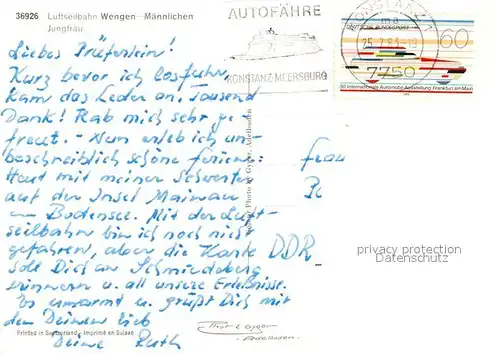 36926 Luftseilbahn Wengen—Männlichen
Jungfrau
AUTOFÄHRE
KONSTANZ-MEERSBURG
KONSTANZ 1
ma
25.-7.83-18
7750
DEUTSCHE BUNDESPOST
60
50 Internationale Automobil-Ausstellung Frankfurt am Main
Liebes Prüferlein!
Kurz bevor ich losfuhr,
kam das Leder an. Tausend
Dank! Hab mich sehr ge-
freut. - Nun erleb ich un-
beschreiblich schöne Ferien:
Heut mit meiner Schwester
auf der Insel Mainau
im Bodensee. Mit der Luft-
seilbahn bin ich noch nicht
gefahren, aber die Karte
soll Dich an Schmiedeberg
erinnern u. all unsere Erlebnisse.
Es umarmt u. grüßt Dich mit
den Deinen lieb
Deine Ruth
Frau
DDR
privacy protection
Datenschutz
Photo Gyger, Adelboden
Printed in Switzerland - Imprimé en Suisse
Phot E Gyger
Adelboden